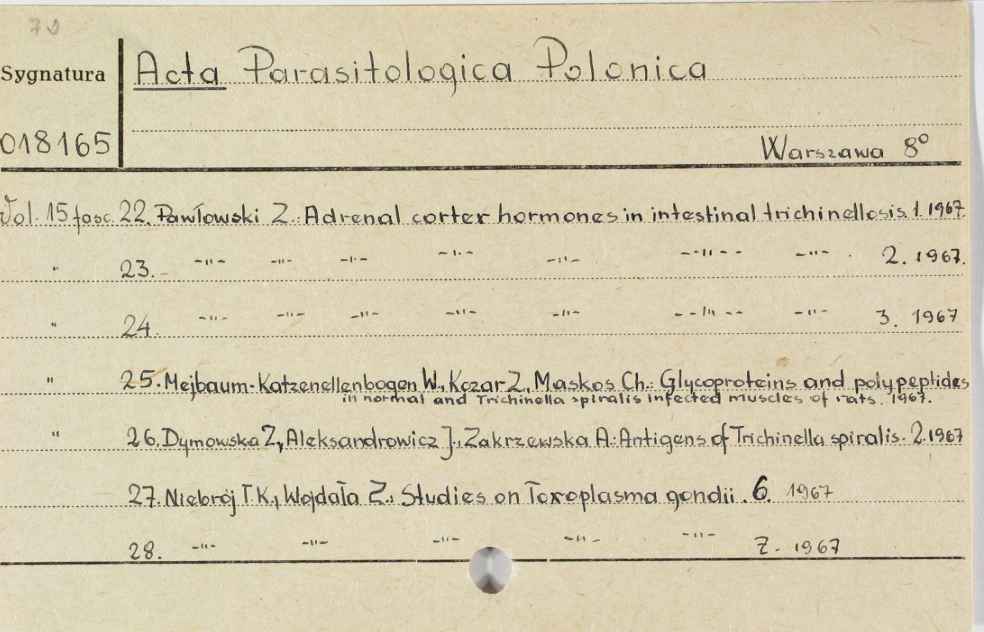 70
Sygnatura
Acta Parasitologica Polonica
018165
Warszawa 8°
Vol. 15 fasc. 22. Pawłowski Z.: Adrenal corter hormones in intestinal trichinellosis. 1. 1967.
" 23. -"- -"- -"- -"- -"- -"- -"- . 2. 1967.
" 24. -"- -"- -"- -"- -"- -"- -"- 3. 1967
" 25. Mejbaum-Katzenellenbogen W., Kczar Z., Maskos Ch.: Glycoproteins and polypeptides
in normal and Trichinella spiralis infected muscles of rats. 1967.
" 26. Dymowska Z., Aleksandrowicz J., Zakrzewska A.: Antigens of Trichinella spiralis. 2. 1967
27. Niebrój T.K., Wojdała Z.: Studies on Toxoplasma gondii. 6. 1967
28. -"- -"- -"- -"- -"- 7. 1967